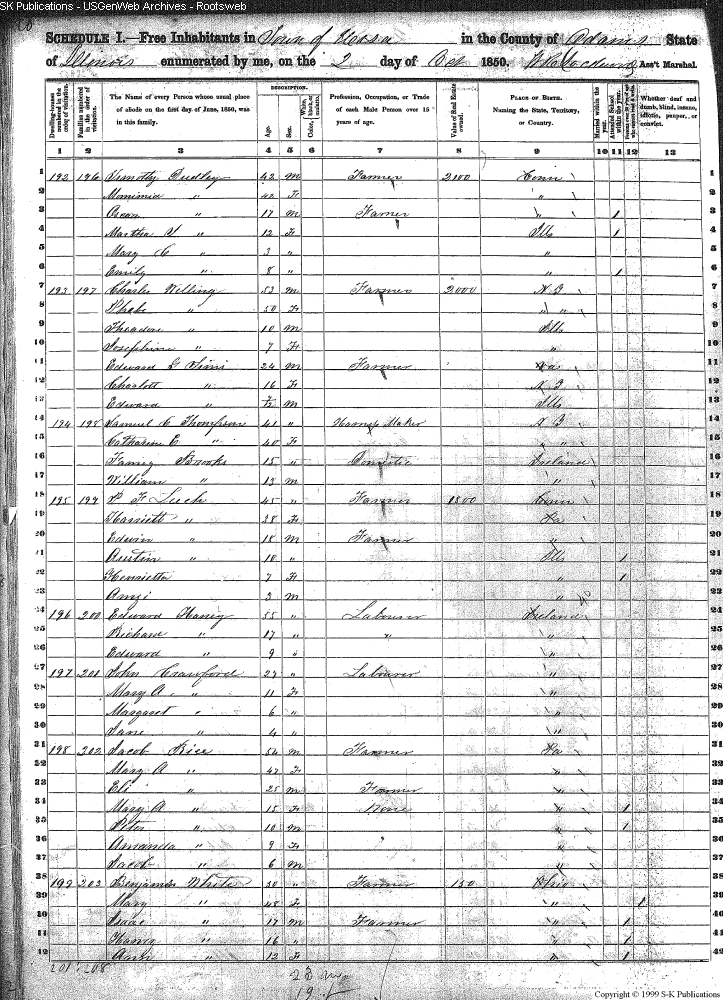 SK Publications - USGenWeb Archives - Rootsweb
SCHEDULE I.—Free Inhabitants in Town of Ursa in the County of Adams State
of Illinois enumerated by me, on the 2 day of Oct 1850. Ass't Marshal.
Dwelling-houses numbered in the order of visitation.
Families numbered in the order of visitation.
The Name of every Person whose usual place of abode on the first day of June, 1850, was in this family.
DESCRIPTION.
Age.
Sex.
White, black, or mulatto.
Color,
Profession, Occupation, or Trade of each Male Person over 15 years of age.
Value of Real Estate owned.
PLACE OF BIRTH. Naming the State, Territory, or Country.
Married within the year.
Attended School within the year.
Whether deaf and dumb, blind, insane, idiotic, pauper, or convict.
1 2 3 4 5 6 7 8 9 10 11 12 13
1 192 196 Timothy Dudley 42 M Farmer 2100 Conn 1
2 " 42 F " 2
3 Oscar " 17 M Farmer " 1 3
4 Martha " 12 F Ills 1 4
5 Mary C " 3 " " 5
6 Emily " 8 " " 1 6
7 193 197 Charles Welling 53 M Farmer 2000 N J 7
8 Phebe " 50 F " " 8
9 Theadore " 10 M Ills 9
10 Josephine " 7 F " 10
11 Edward G Sims 24 M Farmer Va 11
12 Charlott " 16 F N J 12
13 Edward " M Ills 13
14 194 198 Samuel C Thompson 41 " Harness Maker N J 14
15 Catharine E " 40 F " " 15
16 Fanny Brooks 15 " Domestic Ireland 16
17 William " 13 M " 17
18 195 199 P F Luch 45 " Farmer 1800 Conn 18
19 Harriett " 28 F Pa 19
20 Edwin " 18 M Farmer " 20
21 Austin " 10 " Ills 1 21
22 Henrietta 7 F " 1 22
23 3 M " 23
24 196 200 Edward Haney 55 " Labourer Ireland 24
25 Richard " 17 " " " 25
26 Edward " 9 " " 26
27 197 201 John Crawford 27 " Labourer " 27
28 Mary A. " 11 F " 28
29 Margaret " 6 " " 29
30 Jane " 4 " " 30
31 198 202 Jacob Rice 54 M Farmer Pa 31
32 Mary A " 47 F " 32
33 Eli " 25 M Farmer " 33
34 Mary A " 15 F None " 1 34
35 Peter " 10 M " 1 35
36 Amanda " 9 F " " 36
37 Jacob " 6 M " 37
38 199 203 Benjamin White 50 " Farmer 150 Ohio 38
39 Mary " 48 F " 1 39
40 Isaac " 17 M Farmer " 1 40
41 " 16 " " 1 41
42 " 12 F " 1 42
201 : 208
23
19
Copyright © 1999 S-K Publications